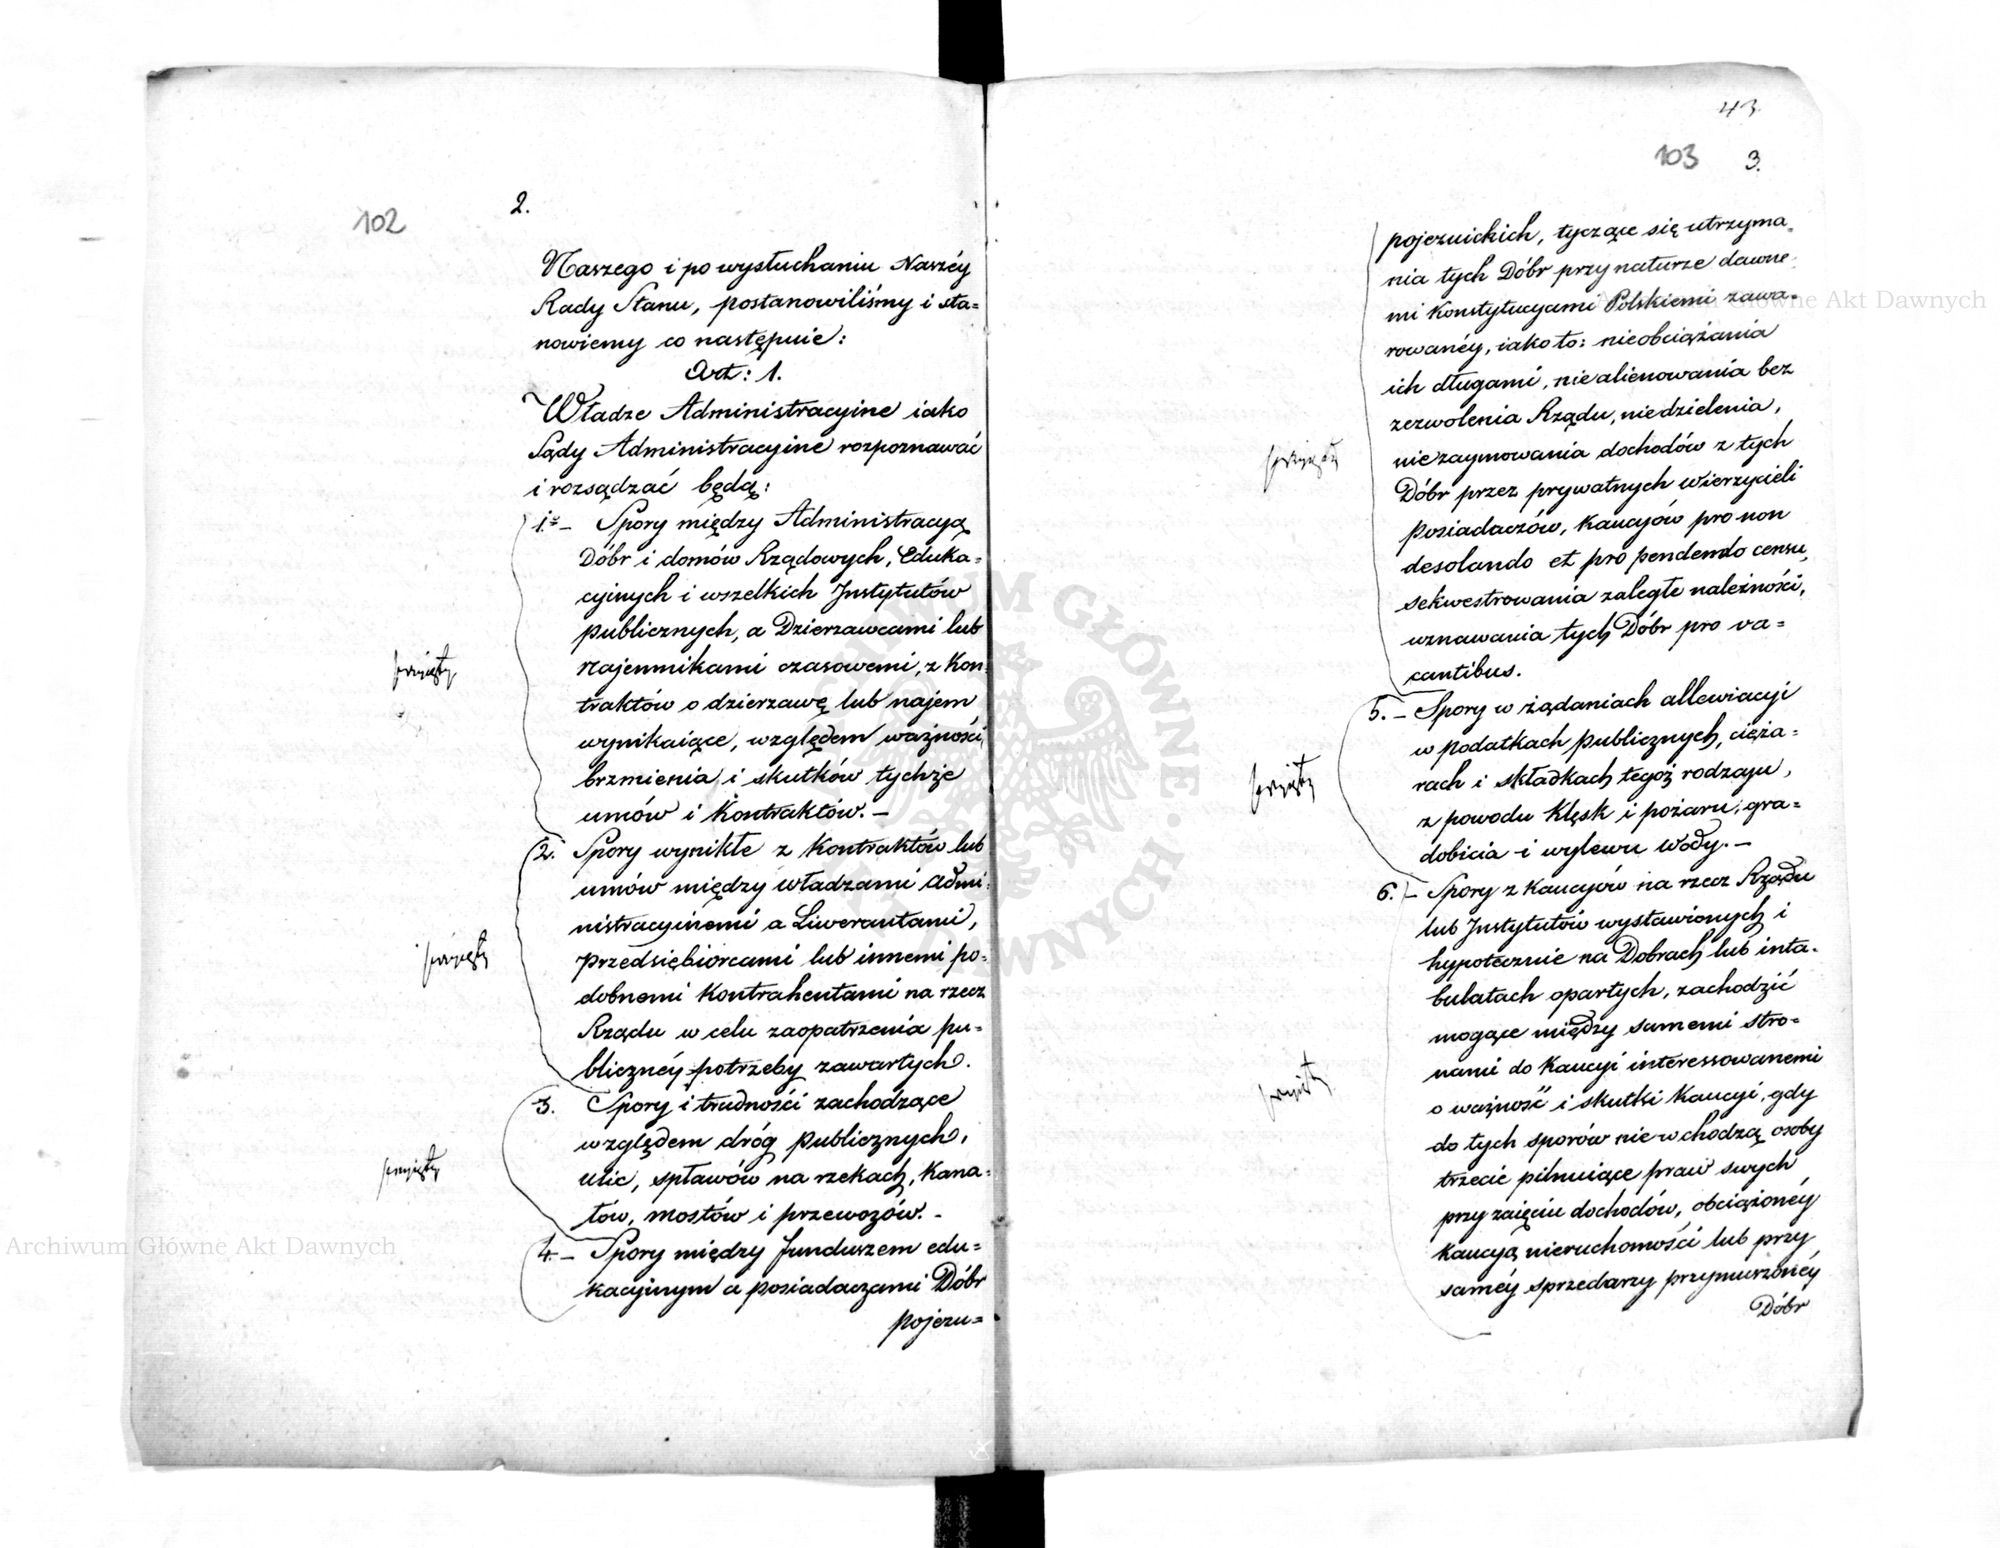 102
2.
Naszego i po wysłuchaniu Naszéy
Rady Stanu, postanowiliśmy i sta=
nowiemy co następuie:
Art: 1.
Władze Administracyine iako
Sądy Administracyine rozpoznawać
i rozsądzać będą:
1º– Spory między Administracyą
Dóbr i domów Rządowych, Eduka=
cyinych i wszelkich Instytutów
publicznych, a Dzierzawcami lub
Najemnikami czasowemi, z Kon=
traktów o dzierzawę lub najem
wynikaiące, względem ważności,
brzmienia, i skutków tychże
umów i Kontraktów.–
przyięty
2. Spory wynikłe z Kontraktów lub
umów między władzami Admi=
nistracyinemi a Liwerantami,
przedsiębiorcami lub innemi po=
dobnemi Kontrahentami na rzecz
Rządu w celu zaopatrzenia pu=
blicznéy potrzeby zawartych.
przyięty
3. Spory i trudności zachodzące
względem dróg publicznych,
ulic, spławów na rzekach, Kana=
łów, mostów i przewozów.–
przyięty
4.– Spory między funduszem edu=
kacyinym a posiadaczami Dóbr
pojezu=
43.
103 3.
pojezuickich, tyczące się utrzyma=
nia tych Dóbr przy naturze dawne=
mi Konstytucyami Polskiemi zawa=
rowanéy, iako to: nieobciążania
ich długami, nie alienowania bez
zezwolenia Rządu, niedzielenia,
niezaymowania dochodów z tych
Dóbr przez prywatnych wierzycieli
posiadaczów, Kaucyów pro non
desolando et pro pendendo censu,
sekwestrowania zaległe należności,
uznawania tych Dóbr pro va=
cantibus.
przyięty
5.– Spory w żądaniach allewiacyi
w podatkach publicznych, cięża=
rach i składkach tegoż rodzaju,
z powodu Klęsk i pożaru, gra=
dobicia i wylewu wody.–
przyięty
6.– Spory z Kaucyów na rzecz Rządu
lub Instytutów wystawionych i
hypotecznie na Dobrach lub inta=
bulatach opartych, zachodzić
mogące między samemi stro=
nami do Kaucyi interessowanemi
o ważność i skutki Kaucyi, gdy
do tych sporów nie wchodzą osoby
trzecie pilnuiące praw swych
przy zaięciu dochodów, obciążonéy
Kaucyą nieruchomości lub przy
saméy sprzedarzy przymuszonéy
Dóbr
przyięty
Archiwum Główne Akt Dawnych
Archiwum Główne Akt Dawnych
ARCHIWUM GŁÓWNE AKT DAWNYCH